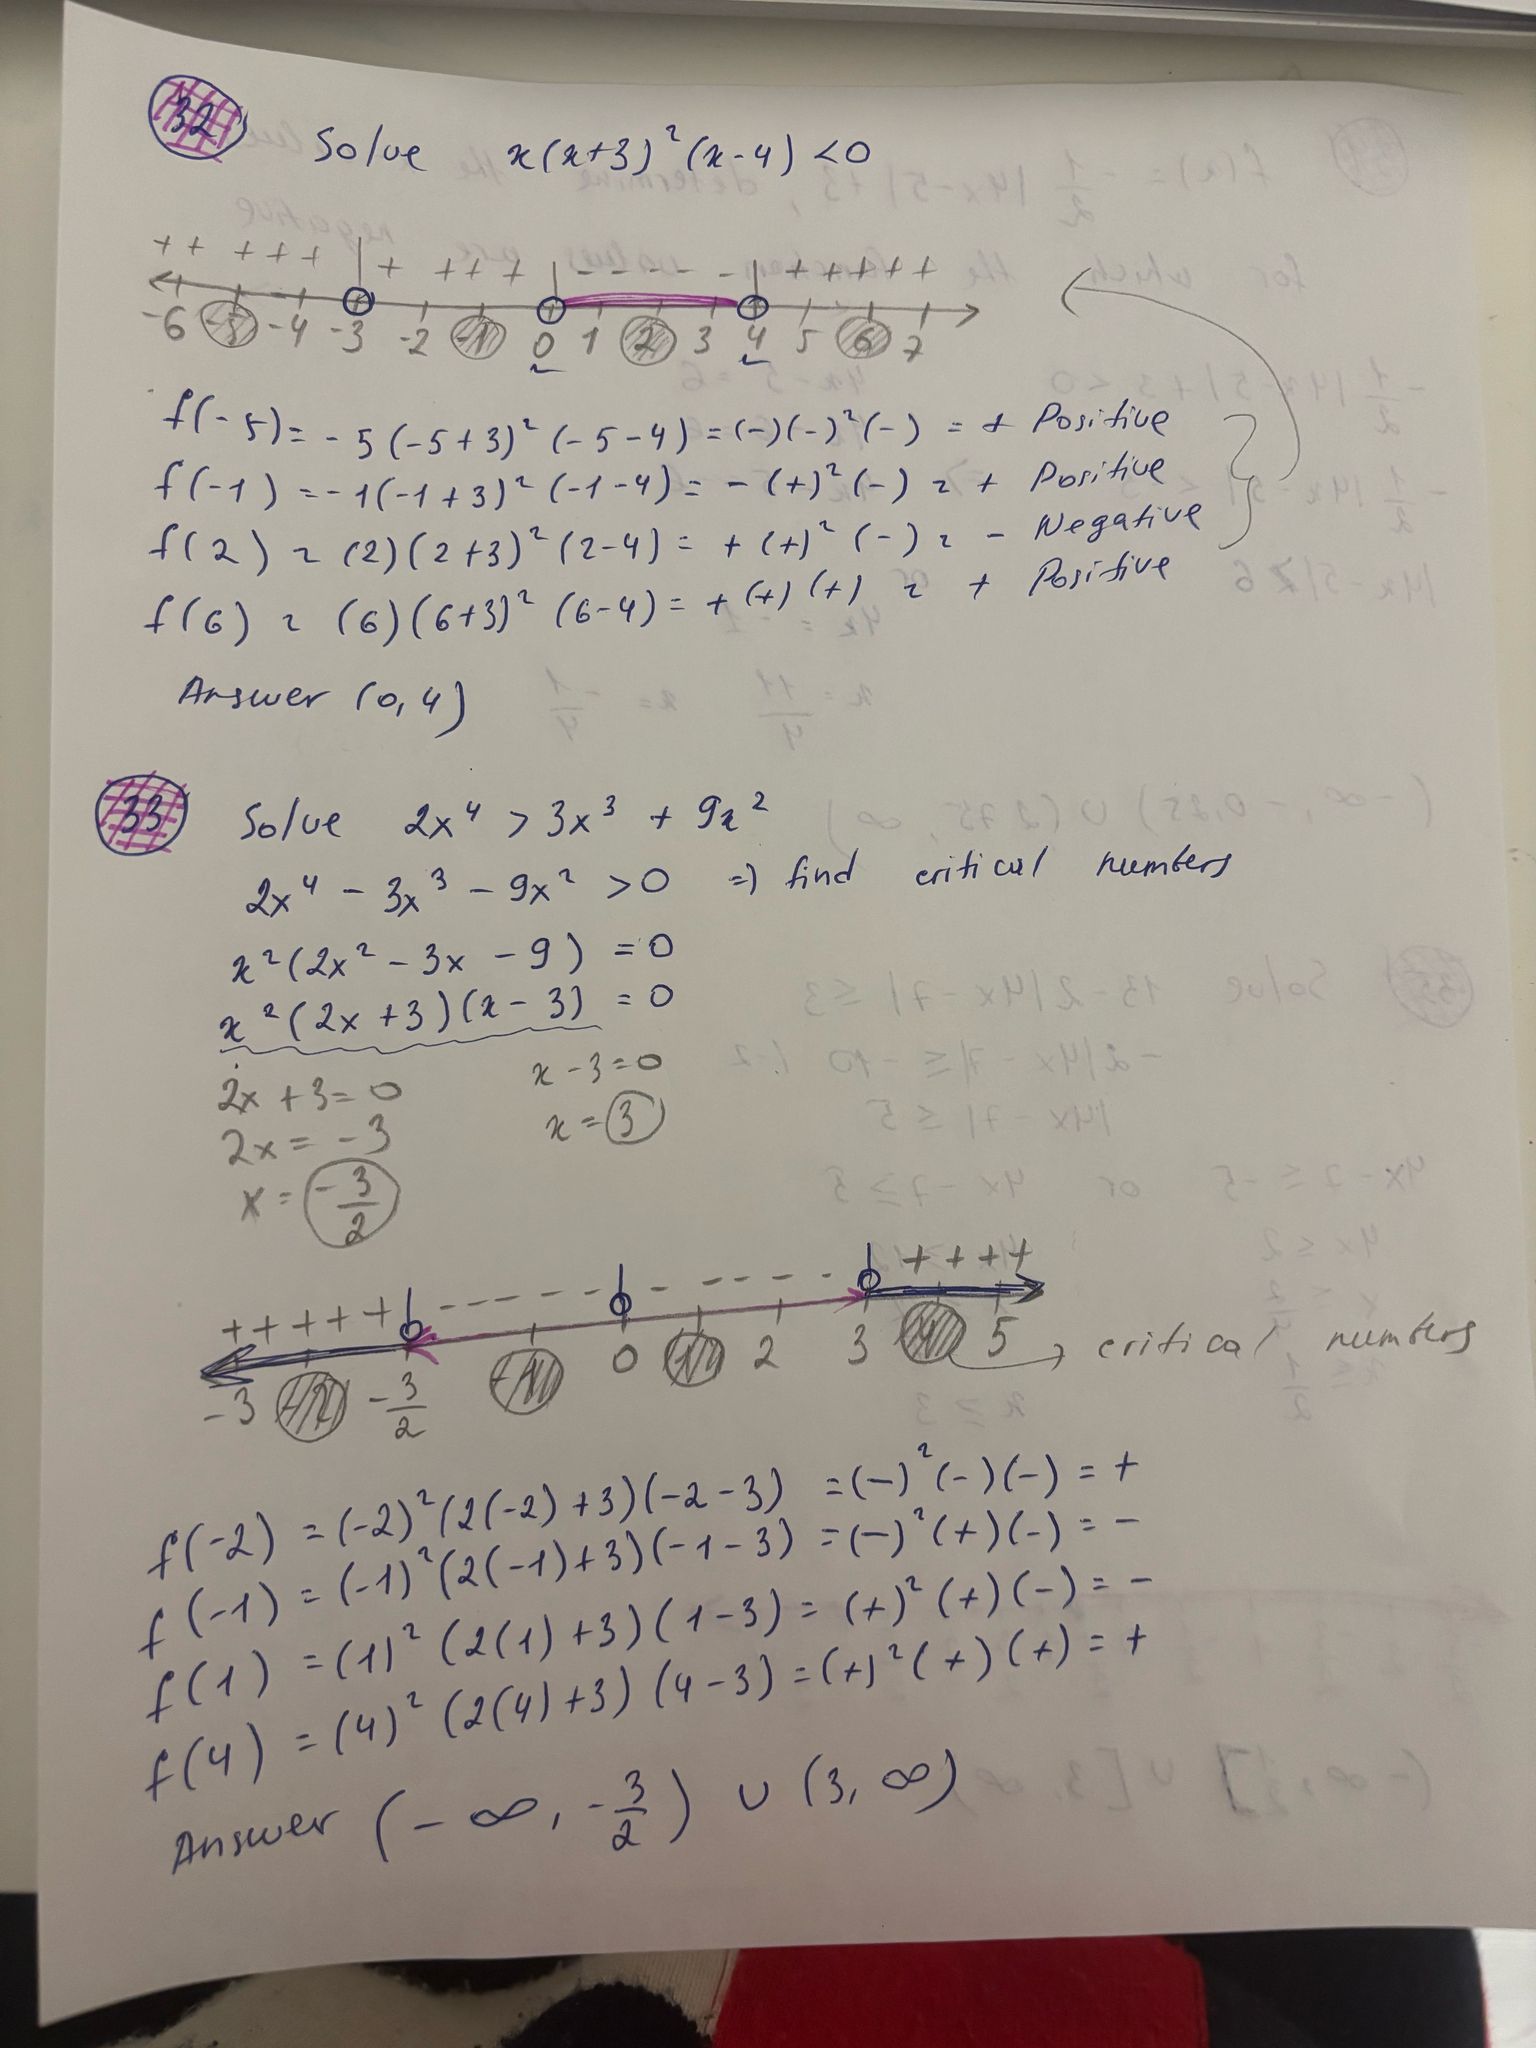 32 Solve x(x+3)²(x-4) <0
++ +++ + +++ - - - - - +++++
-6 -5 -4 -3 -2 -1 0 1 2 3 4 5 6 7
f(-5)= -5(-5+3)²(-5-4)=(-)(-)²(-) = + Positive
f(-1) = -1(-1+3)²(-1-4)= -(+)²(-) = + Positive
f(2) = (2)(2+3)²(2-4)= +(+)²(-) = - Negative
f(6) = (6)(6+3)²(6-4)= +(+)(+) = + Positive
Answer (0,4)
33 Solve 2x⁴ > 3x³ + 9x²
2x⁴ - 3x³ - 9x² >0 => find critical numbers
x²(2x² - 3x - 9) =0
x²(2x+3)(x-3) =0
2x+3=0 x-3=0
2x= -3 x=3
x= -3/2
+++++ - - - - - - - - - - - ++++
-3 -2 -3/2 -1 0 1 2 3 4 5 → critical numbers
f(-2) =(-2)²(2(-2)+3)(-2-3) =(-)²(-)(-) = +
f(-1) = (-1)²(2(-1)+3)(-1-3) =(-)²(+)(-) = -
f(1) =(1)²(2(1)+3)(1-3)= (+)²(+)(-) = -
f(4) = (4)²(2(4)+3)(4-3)=(+)²(+)(+) = +
Answer (-∞, -3/2) ∪ (3,∞)